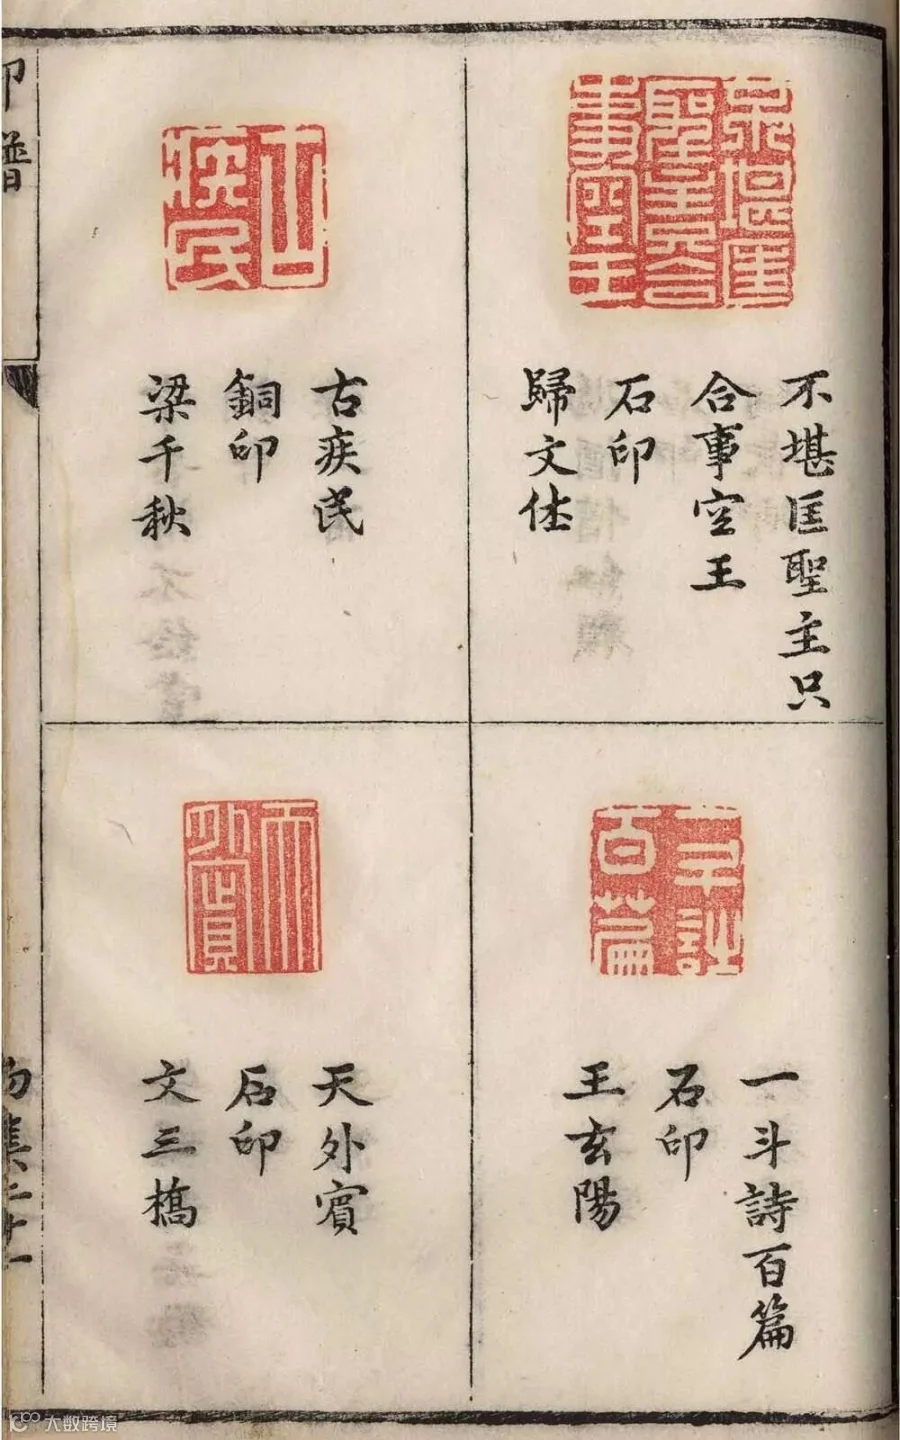 不堪匡聖主只
合事空王
石印
歸文休
古疾民
銅印
梁千秋
一斗詩百篇
石印
王玄陽
天外賓
石印
文三橋
印譜
大数跨境